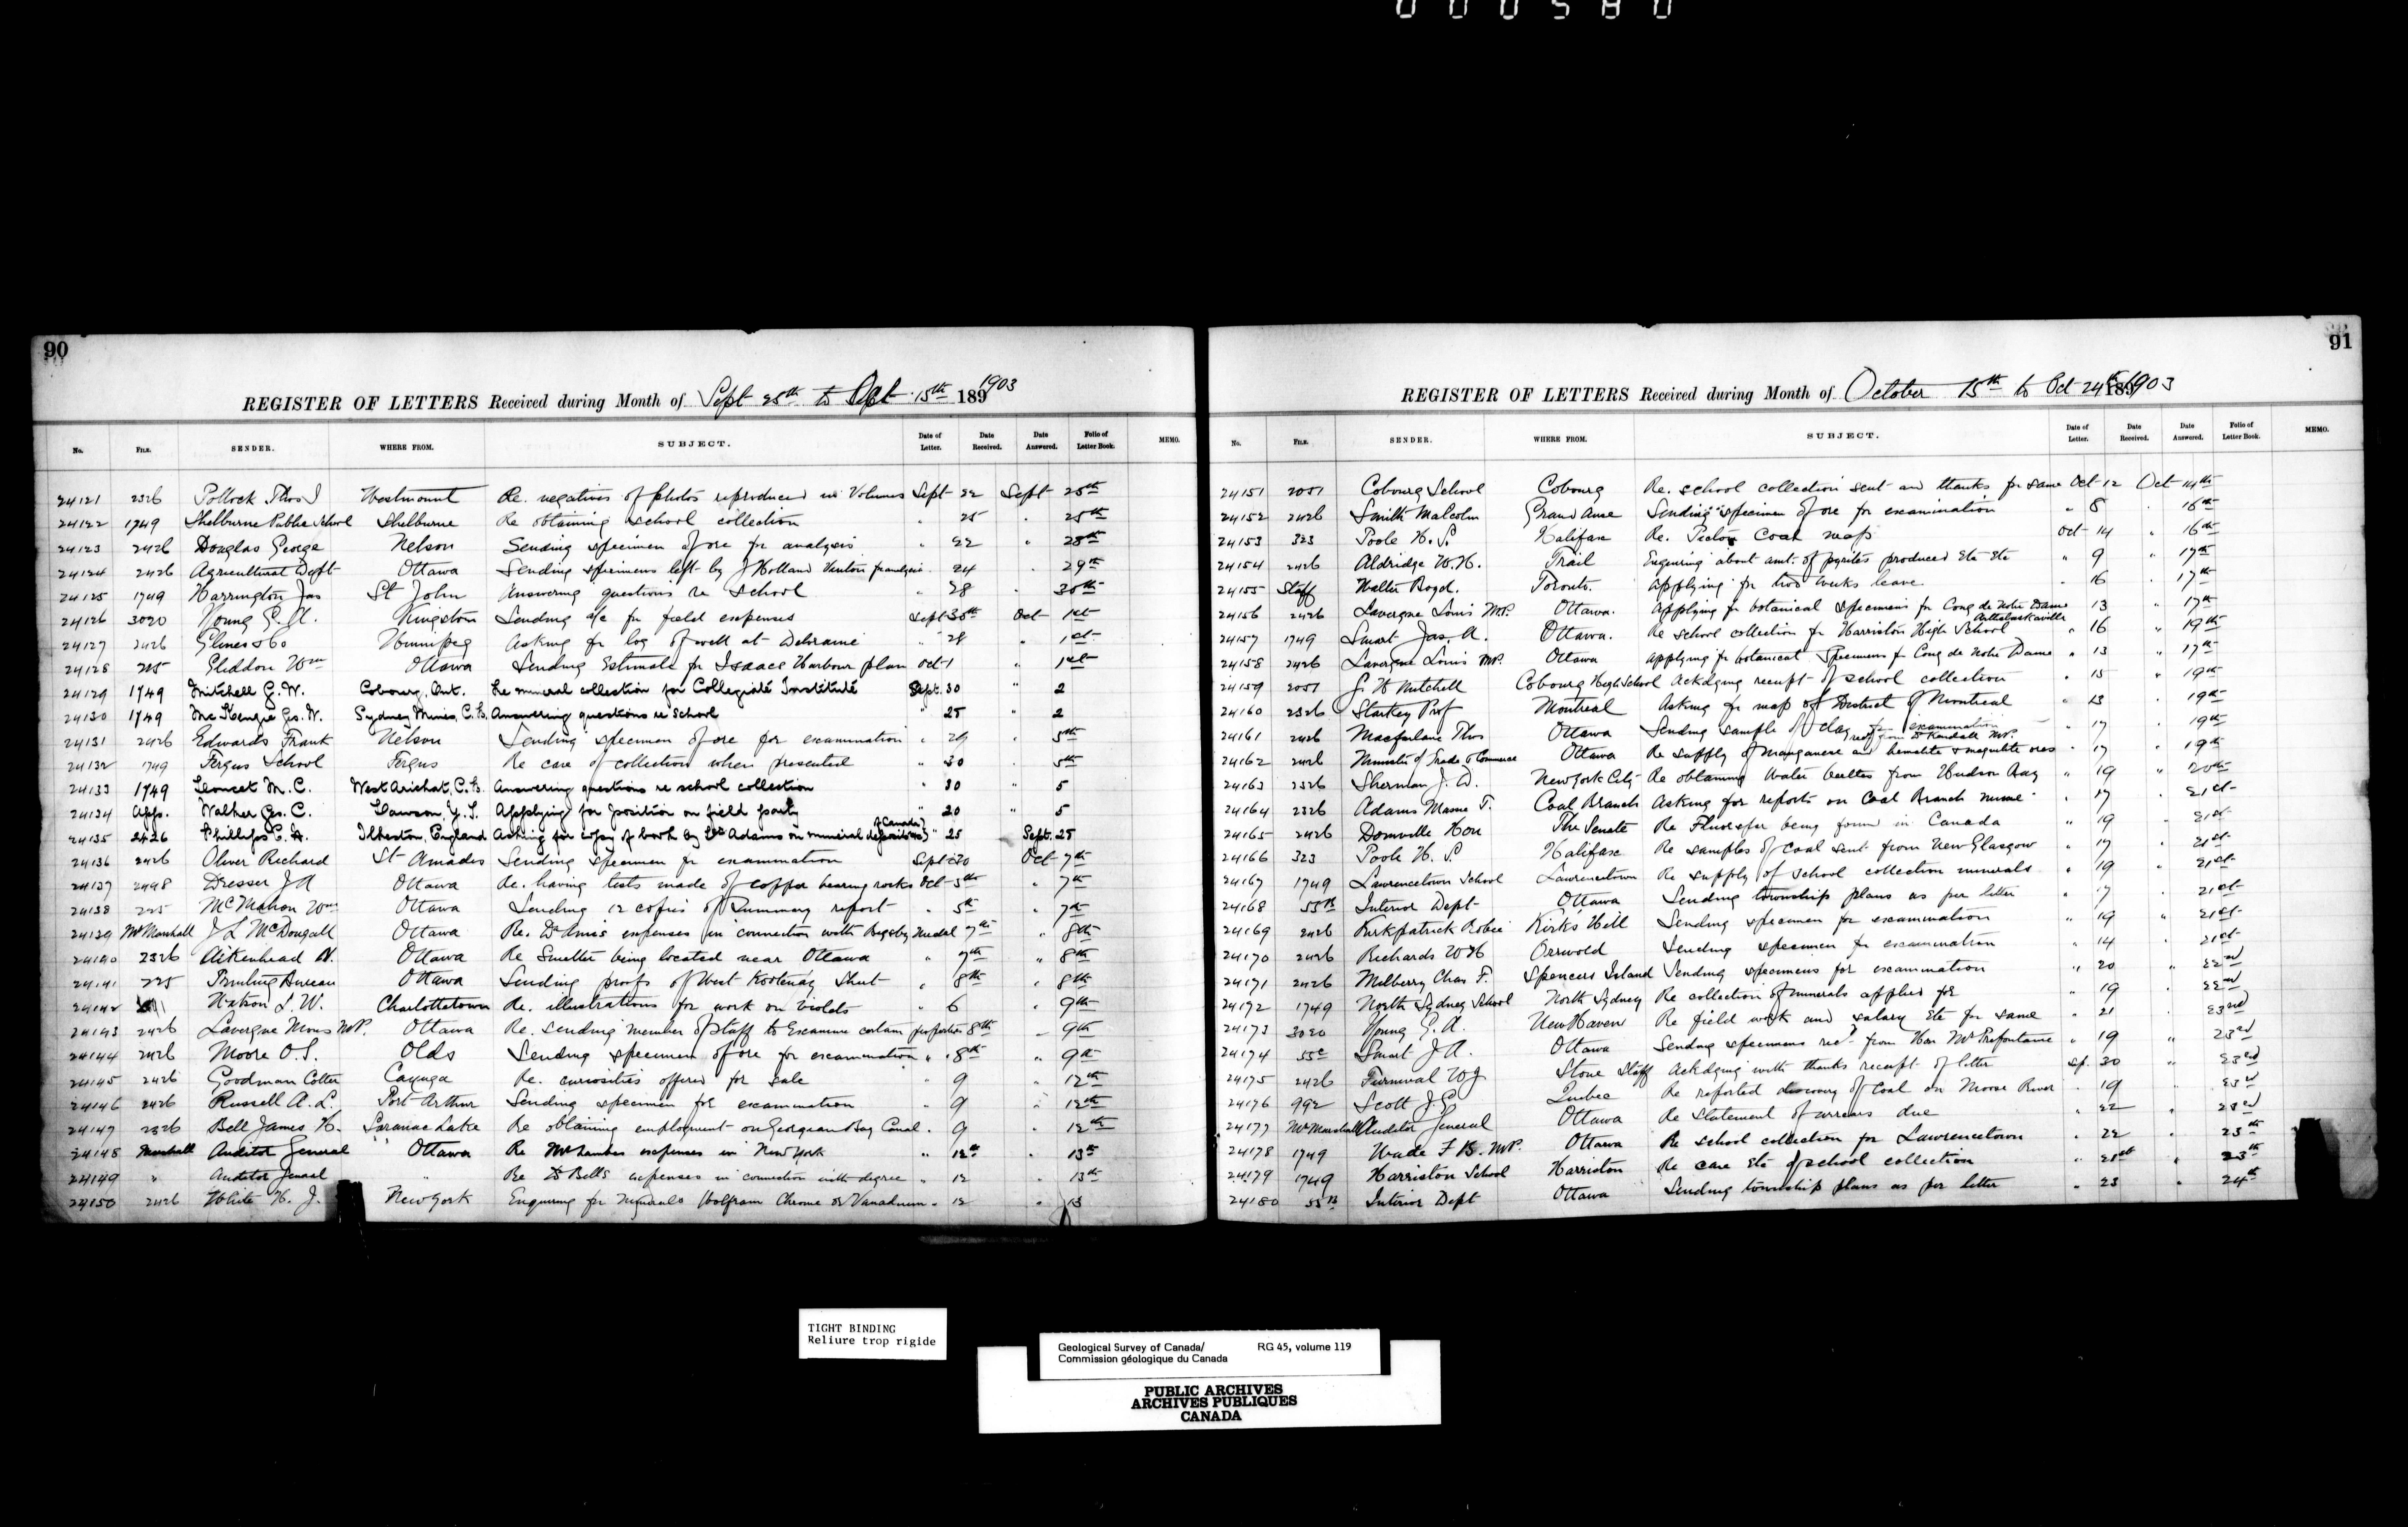 000580
90
REGISTER OF LETTERS Received during Month of Sept 25th to Oct 15th 1891903
No. FILE. SENDER. WHERE FROM. SUBJECT. Date of Letter. Date Received. Date Answered. Folio of Letter Book. MEMO.
24121 2326 Pollock Thos J Westmount Re. negatives of photos reproduced in Volumes Sept 22 Sept 25th
24122 1749 Shelburne Public School Shelburne Re obtaining school collection " 25 " 25th
24123 2426 Douglas George Nelson Sending specimen of ore for analysis " 22 " 28th
24124 2426 Agricultural Dept Ottawa Sending specimens left by J Holland for analysis " 24 " 29th
24125 1749 Harrington Jas St John Answering questions re school " 28 " 30th
24126 3020 Young G. A. Kingston Sending a/c for field expenses Sept 30th Oct 1st
24127 2426 Glines & Co Winnipeg Asking for log of well at Deloraine " 28 " 1st
24128 225 Gliddon Wm Ottawa Sending Estimate for Isaacs Harbour plan Oct 1 " 1st
24129 1749 Mitchell G. W. Cobourg, Ont. Re mineral collection for Collegiate Institute Sept. 30 " 2
24130 1749 McKenzie Geo. W. Sydney Mines, C.B. Answering questions re school " 25 " 2
24131 2426 Edwards Frank Nelson Sending specimen of ore for examination " 29 " 5th
24132 1749 Fergus School Fergus Re care of collection when presented " 30 " 5th
24133 1749 M. C. West Arichat, C.B. Answering questions re school collection " 30 " 5
24134 App. Walker Geo. C. Dawson, Y.T. Applying for position on field party " 20 " 5
24135 2426 Phillips C. A. Ilkeston, England Asking for copy of book by Dr Adams on mineral deposits (of Canada) " 25 Sept. 25
24136 2426 Oliver Richard St Amados Sending specimen for examination Sept 30 Oct 7th
24137 2498 Dresser J A Ottawa Re. having tests made of copper bearing rocks Oct 5th " 7th
24138 225 McMahon Wm Ottawa Sending 12 copies of Summary report " 5th " 7th
24139 Mr Marshall J L McDougall Ottawa Re. Dr Ami's expenses in connection with Bigsby Medal 7th " 8th
24140 2326 Aikenhead N. Ottawa Re Smelter being located near Ottawa " 7th " 8th
24141 225 Printing Bureau Ottawa Sending proofs of West Kootenay Sheet " 8th " 8th
24142 Watson L. W. Charlottetown Re. illustrations for work on Violets " 6 " 9th
24143 2426 Lavergne Mons MP. Ottawa Re. sending member of staff to Examine certain properties 8th " 9th
24144 2426 Moore O.S. Olds Sending specimen of ore for examination " 8th " 9th
24145 2426 Goodman Colter Cayuga Re. curiosities offered for sale " 9 " 12th
24146 2426 Russell A. L. Port Arthur Sending specimen for examination " 9 " 12th
24147 2326 Bell James H. Saranac Lake Re obtaining employment on Georgian Bay Canal " 9 " 12th
24148 Marshall Auditor General Ottawa Re Mr Lambes expenses in New York " 12th " 13th
24149 " Auditor General " Re Dr Bells expenses in connection with degree " 12 " 13th
24150 2426 White H. J. New York Enquiring for minerals Wolfram Chrome or Vanadium " 12 " 13
91
REGISTER OF LETTERS Received during Month of October 15th to Oct 24th 1891903
No. FILE. SENDER. WHERE FROM. SUBJECT. Date of Letter. Date Received. Date Answered. Folio of Letter Book. MEMO.
24151 2051 Cobourg School Cobourg Re. school collection sent and thanks for same Oct 12 Oct 14th
24152 2426 Smith Malcolm Grand Anse Sending specimen of ore for examination " 8 " 16th
24153 323 Poole H. S. Halifax Re. Pictou Coal map Oct 14 " 16th
24154 2426 Aldridge W.H. Trail Enquiring about amt. of pyrites produced Etc Etc " 9 " 17th
24155 Staff Walter Boyd. Toronto. Applying for two weeks leave " 16 " 17th
24156 2426 Lavergne Louis MP. Ottawa. Applying for botanical specimens for Cong de Notre Dame Arthabaskaville 13 " 17th
24157 1749 Smart Jas. A. Ottawa. Re school collection for Harriston High School " 16 " 19th
24158 2426 Lavergne Louis MP. Ottawa Applying for botanical specimens for Cong de Notre Dame " 13 " 17th
24159 2051 G. W Mitchell Cobourg High School Ackdging receipt of school collection " 15 " 19th
24160 2326 Starkey Prof Montreal Asking for map of District of Montreal " 13 " 19th
24161 2426 Macfarlane Thos Ottawa Sending sample of clay for examination recd from Dr Kendall MP. " 17 " 19th
24162 2426 Minister of Trade & Commerce Ottawa Re supply of manganese and hematite & magnetite ores " 17 " 19th
24163 2326 Sherman J. D. New York City Re obtaining Water beetles from Hudson Bay " 19 " 20th
24164 2326 Adams T. Coal Branch Asking for reports on Coal Branch mine " 17 " 21st
24165 2426 Domville Hon The Senate Re Fluorspar being found in Canada " 19 " 21st
24166 323 Poole H. S Halifax Re samples of coal sent from New Glasgow " 17 " 21st
24167 1749 Lawrencetown School Lawrencetown Re supply of school collection minerals " 19 " 21st
24168 55B Interior Dept Ottawa Sending township plans as per letter " 17 " 21st
24169 2426 Kirkpatrick Robie Kirk's Hill Sending specimen for examination " 19 " 21st
24170 2426 Richards W H Orrwold Sending specimen for examination " 14 " 21st
24171 2426 Melberry Chas F. Spencers Island Sending specimens for examination " 20 " 22nd
24172 1749 North Sydney School North Sydney Re collection of minerals applied for " 19 " 22nd
24173 3020 Young G. A. New Haven Re field work and salary Etc for same " 21 " 23rd
24174 55c Smart J A. Ottawa Sending specimens recd from Hon Mr Prefontaine " 19 " 23rd
24175 2426 Furnival W J Stone Staff Ackdging with thanks receipt of letter Sp. 30 " 23rd
24176 992 Scott J. G. Quebec Re reported discovery of coal on Moose River " 19 " 23rd
24177 Mr Marshall Auditor General Ottawa Re statement of arrears due " 22 " 23rd
24178 1749 Wade F B. MP. Ottawa Re school collection for Lawrencetown " 22 " 23th
24179 1749 Harriston School Harriston Re care Etc of school collection " 21st " 23th
24180 55B Interior Dept Ottawa Sending township plans as per letter " 23 " 24th
TIGHT BINDING
Reliure trop rigide
Geological Survey of Canada/ RG 45, volume 119
Commission géologique du Canada
PUBLIC ARCHIVES
ARCHIVES PUBLIQUES
CANADA